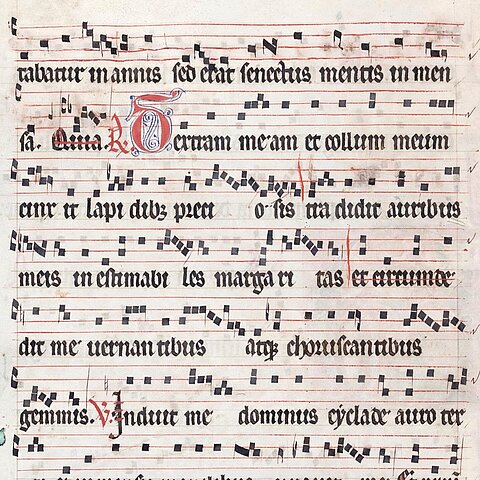 tabatur in annis sed erat senectus mentis in men
sa. Quia R Dextram meam et collum meum
cinx it lapi dibz preci o sis tra didit auribus
meis in estimabi les marga ri tas et circumde
dit me uernan tibus atqz choruscantibus
gemmis. V. Induit me dominus cyclade auro tex